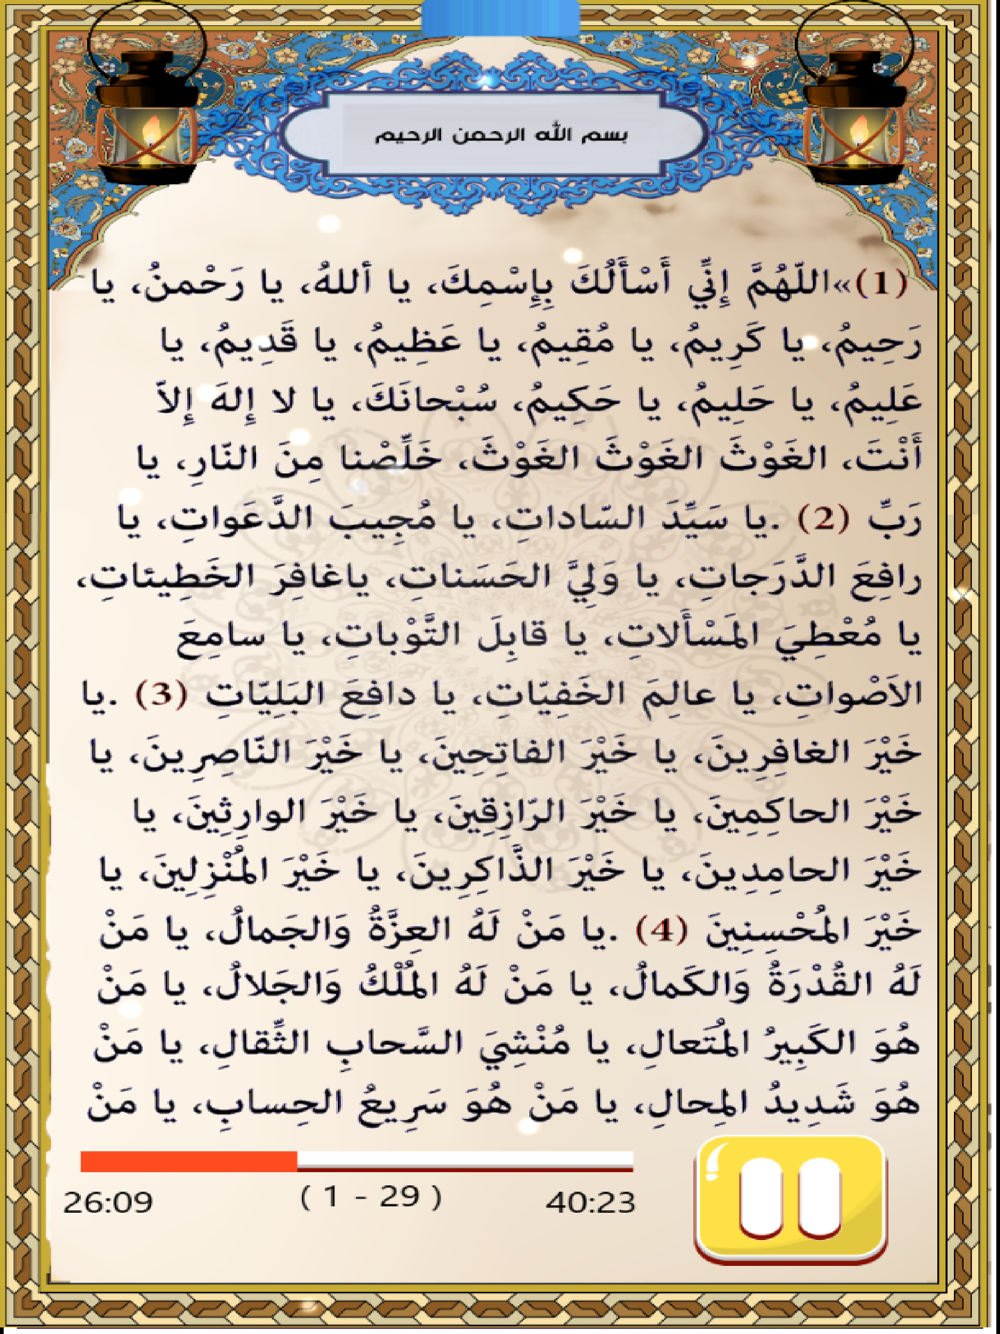 بسم الله الرحمن الرحيم
(1)»اللّهُمَّ إِنِّي أَسْأَلُكَ بِإِسْمِكَ، يا أللهُ، يا رَحْمنُ، يا
رَحِيمُ، يا كَرِيمُ، يا مُقِيمُ، يا عَظِيمُ، يا قَدِيمُ، يا
عَلِيمُ، يا حَلِيمُ، يا حَكِيمُ، سُبْحانَكَ، يا لا إِلهَ إِلاّ
أَنْتَ، الغَوْثَ الغَوْثَ الغَوْثَ، خَلِّصْنا مِنَ النّارِ، يا
رَبِّ (2) .يا سَيِّدَ السّاداتِ، يا مُجِيبَ الدَّعَواتِ، يا
رافِعَ الدَّرَجاتِ، يا وَلِيَّ الحَسَناتِ، ياغافِرَ الخَطِيئاتِ،
يا مُعْطِيَ المَسْأَلاتِ، يا قابِلَ التَّوْباتِ، يا سامِعَ
الاَصْواتِ، يا عالِمَ الخَفِيّاتِ، يا دافِعَ البَلِيّاتِ (3) .يا
خَيْرَ الغافِرِينَ، يا خَيْرَ الفاتِحِينَ، يا خَيْرَ النّاصِرِينَ، يا
خَيْرَ الحاكِمِينَ، يا خَيْرَ الرّازِقِينَ، يا خَيْرَ الوارِثِينَ، يا
خَيْرَ الحامِدِينَ، يا خَيْرَ الذَّاكِرِينَ، يا خَيْرَ المُنْزِلِينَ، يا
خَيْرَ المُحْسِنِينَ (4) .يا مَنْ لَهُ العِزَّةُ وَالجَمالُ، يا مَنْ
لَهُ القُدْرَةُ وَالكَمالُ، يا مَنْ لَهُ المُلْكُ وَالجَلالُ، يا مَنْ
هُوَ الكَبِيرُ المُتَعالِ، يا مُنْشِيَ السَّحابِ الثِّقالِ، يا مَنْ
هُوَ شَدِيدُ المِحالِ، يا مَنْ هُوَ سَرِيعُ الحِسابِ، يا مَنْ
26:09 ( 1 - 29 ) 40:23